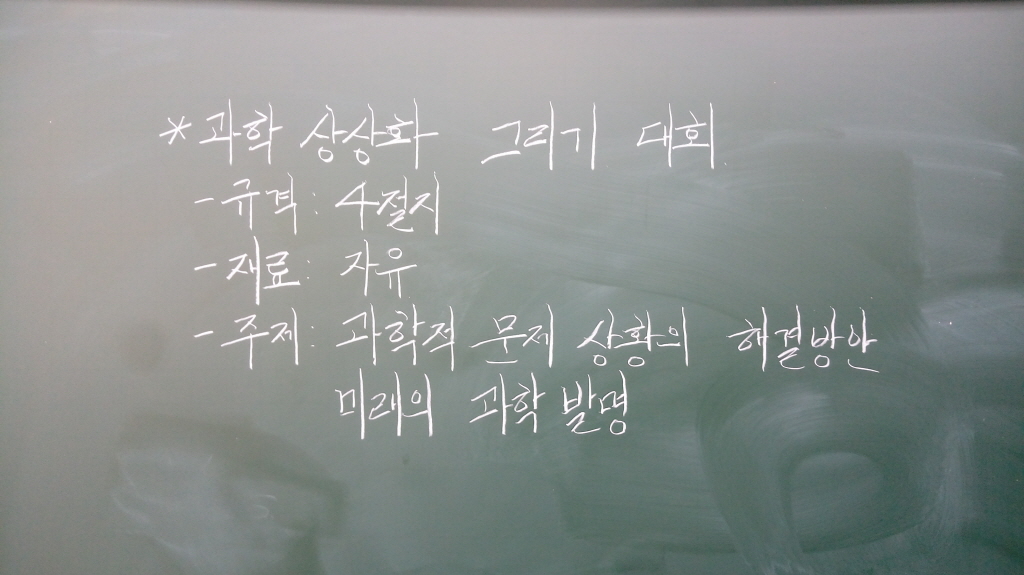 *과학 상상화 그리기 대회.
-규격: 4절지
-재료: 자유
-주제: 과학적 문제 상황의 해결방안
미래의 과학 발명